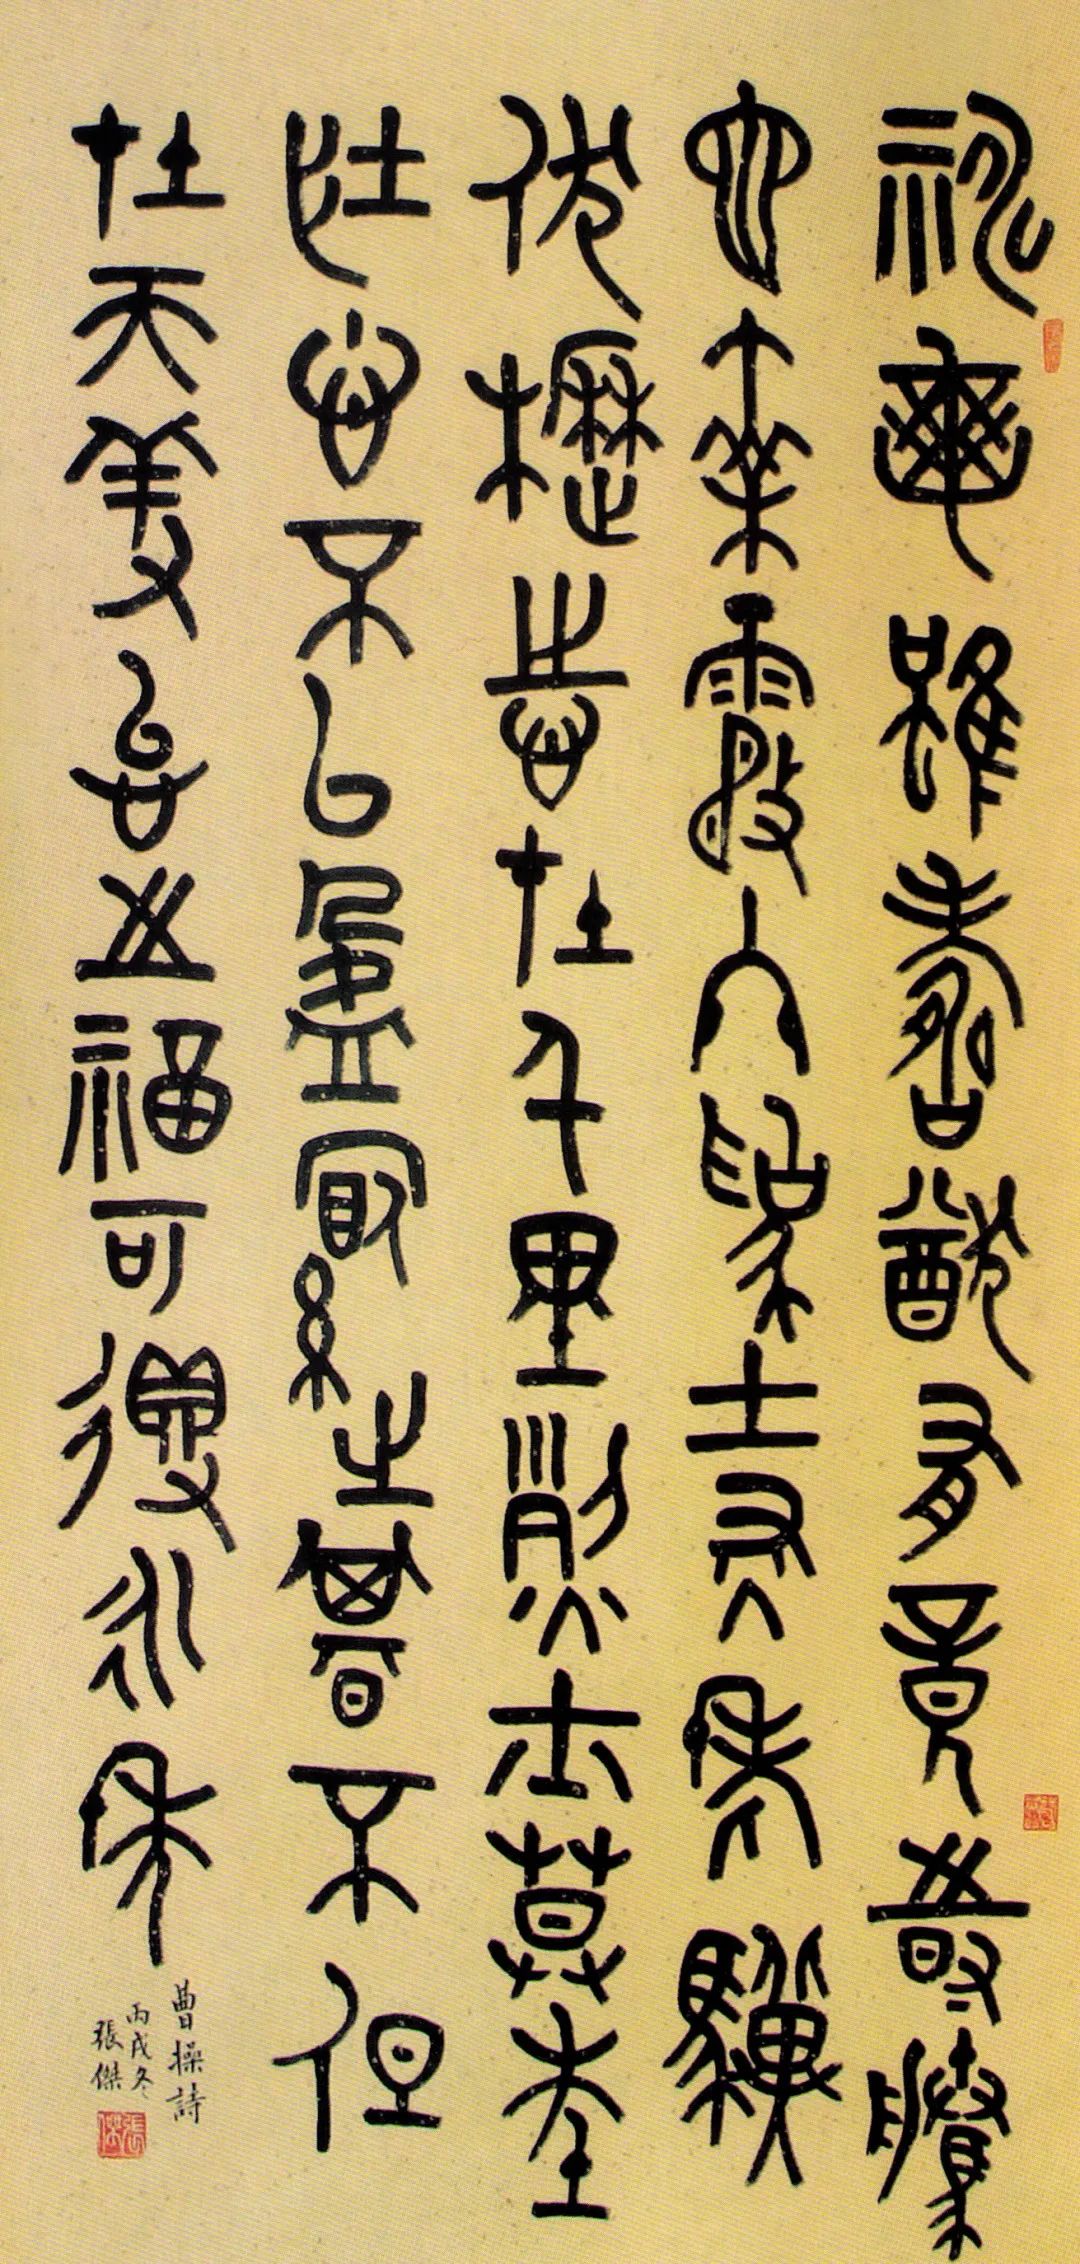 神龜雖壽猶有竟時騰
蛇乘霧終為土灰老驥
伏櫪志在千里烈士暮年
壯心不已盈縮之期不但
在天養怡之福可得永年
曹操詩
丙戌冬
張傑
張傑